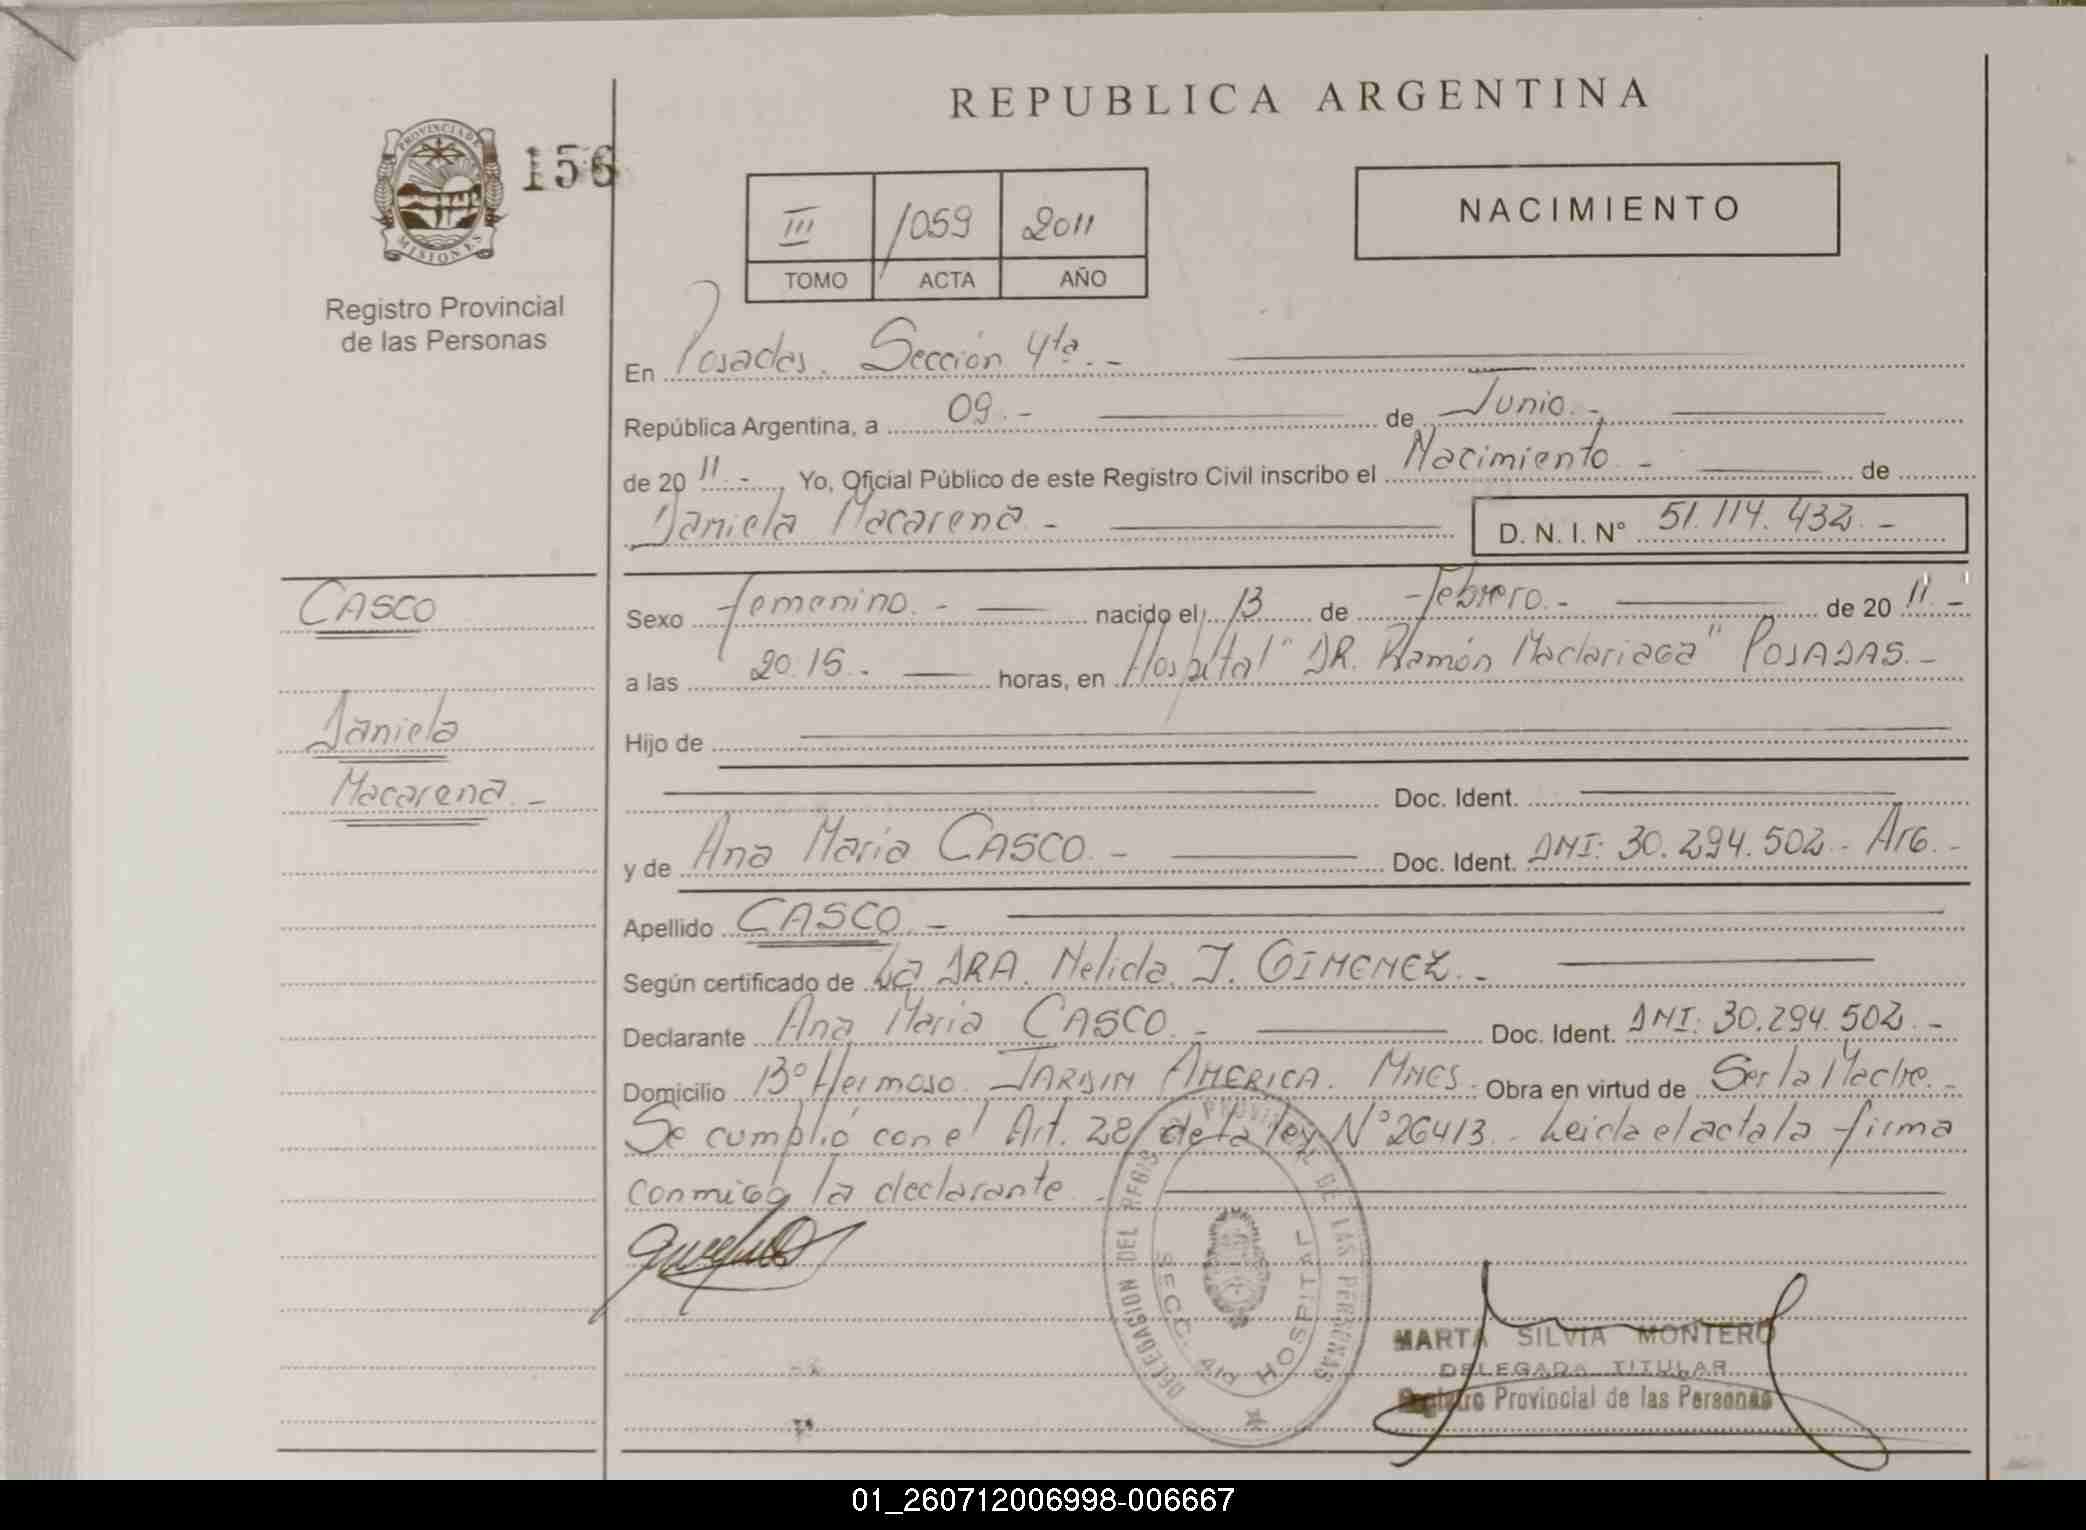 REPUBLICA ARGENTINA
PROVINCIA DE
MISIONES
156
Registro Provincial
de las Personas
III 1059 2011
TOMO ACTA AÑO
NACIMIENTO
En Posadas. Sección 4ta.-
República Argentina, a 09.- de Junio.-
de 20 11.- Yo, Oficial Público de este Registro Civil inscribo el Nacimiento.- de
Daniela Macarena.-
D. N. I. N° 51.114.432.-
CASCO
Daniela
Macarena.-
Sexo femenino.- nacido el 13 de Febrero.- de 20 11.-
a las 20.15.- horas, en Hospital "DR. Ramón Madariaga" POSADAS.-
Hijo de
Doc. Ident.
y de Ana Maria CASCO.- Doc. Ident. DNI: 30.294.502.- ARG.-
Apellido CASCO.-
Según certificado de La DRA. Nelida J. GIMENEZ.-
Declarante Ana Maria CASCO.- Doc. Ident. DNI: 30.294.502.-
Domicilio B° Hermoso. JARDIN AMERICA. MNES. Obra en virtud de Ser la Madre.-
Se cumplió con el Art. 28 de la ley N° 26413.- Leida el acta la firma
conmigo la declarante.-
DELEGACION DEL REGIS PROVINCIAL DE LAS PERSONAS
SECC. HOSPITAL
MARTA SILVIA MONTERO
DELEGADA TITULAR
Registro Provincial de las Personas
01_260712006998-006667